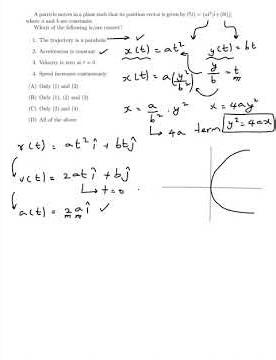 A particle moves in a plane such that its position vector is given by r⃗(t) = (at²î + btĵ),
where a and b are constants.
Which of the following is/are correct?
1. The trajectory is a parabola. ✓
2. Acceleration is constant. ✓
3. Velocity is zero at t = 0.
4. Speed increases continuously.
(A) Only (1) and (2)
(B) Only (1), (2) and (3)
(C) Only (2) and (4)
(D) All of the above
x(t) = at²
y(t) = bt
y/b = t
x(t) = a(y²/b²)
x = a/b² · y²
x = 4ay²
↳ 4a term
y² = 4ax
r(t) = at² î + bt ĵ
v(t) = 2at î + b ĵ
↳ t=0
a(t) = 2a î ✓